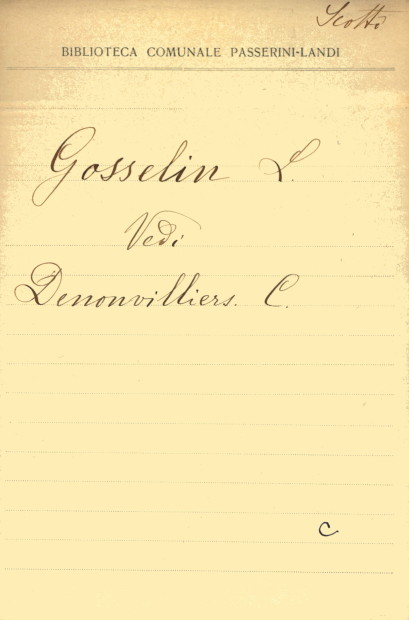 Scotti
BIBLIOTECA COMUNALE PASSERINI-LANDI
Gosselin L.
Vedi
Denonvilliers. C.
c